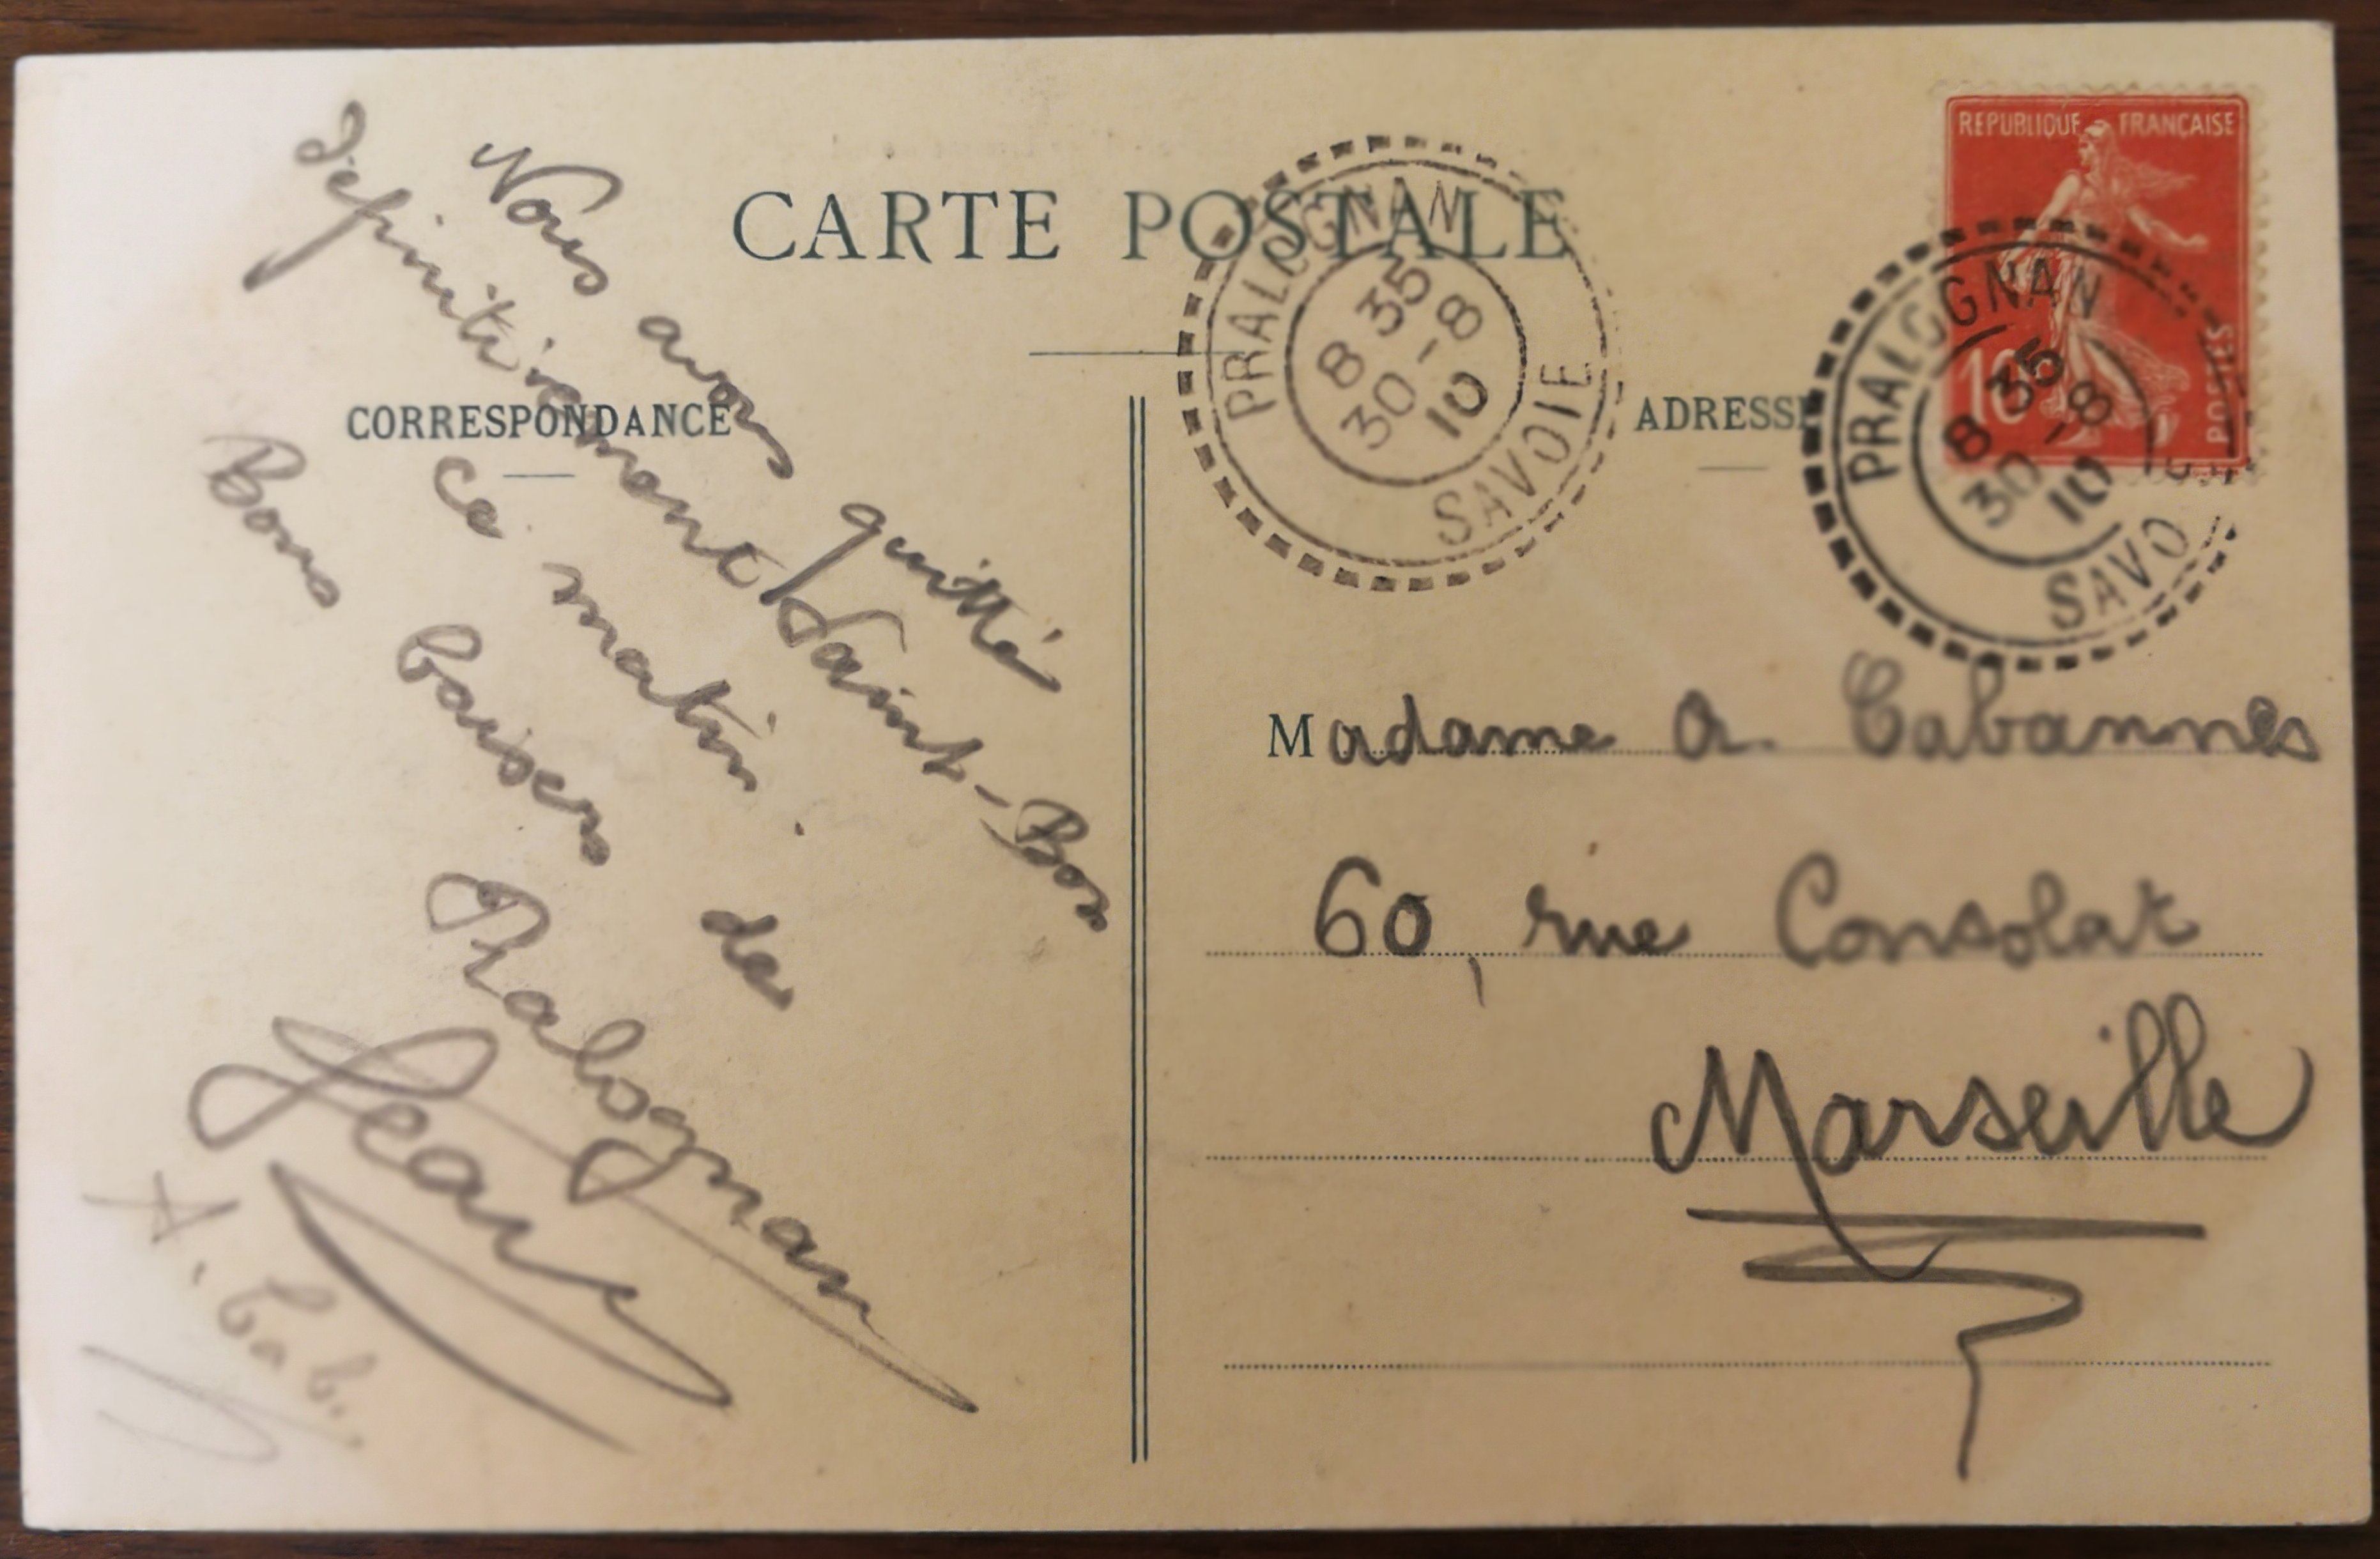 CARTE POSTALE
CORRESPONDANCE
ADRESSE
REPUBLIQUE FRANÇAISE
10
POSTES
PRALOGNAN
8 35
30-8
10
SAVOIE
PRALOGNAN
8 35
30-8
10
SAVO
Nous avons quitté
définitivement Saint-Bon
ce matin.
Bons baisers de
Pralognan
Jean
A. Cab.
Madame A. Cabannes
60, rue Consolat
Marseille